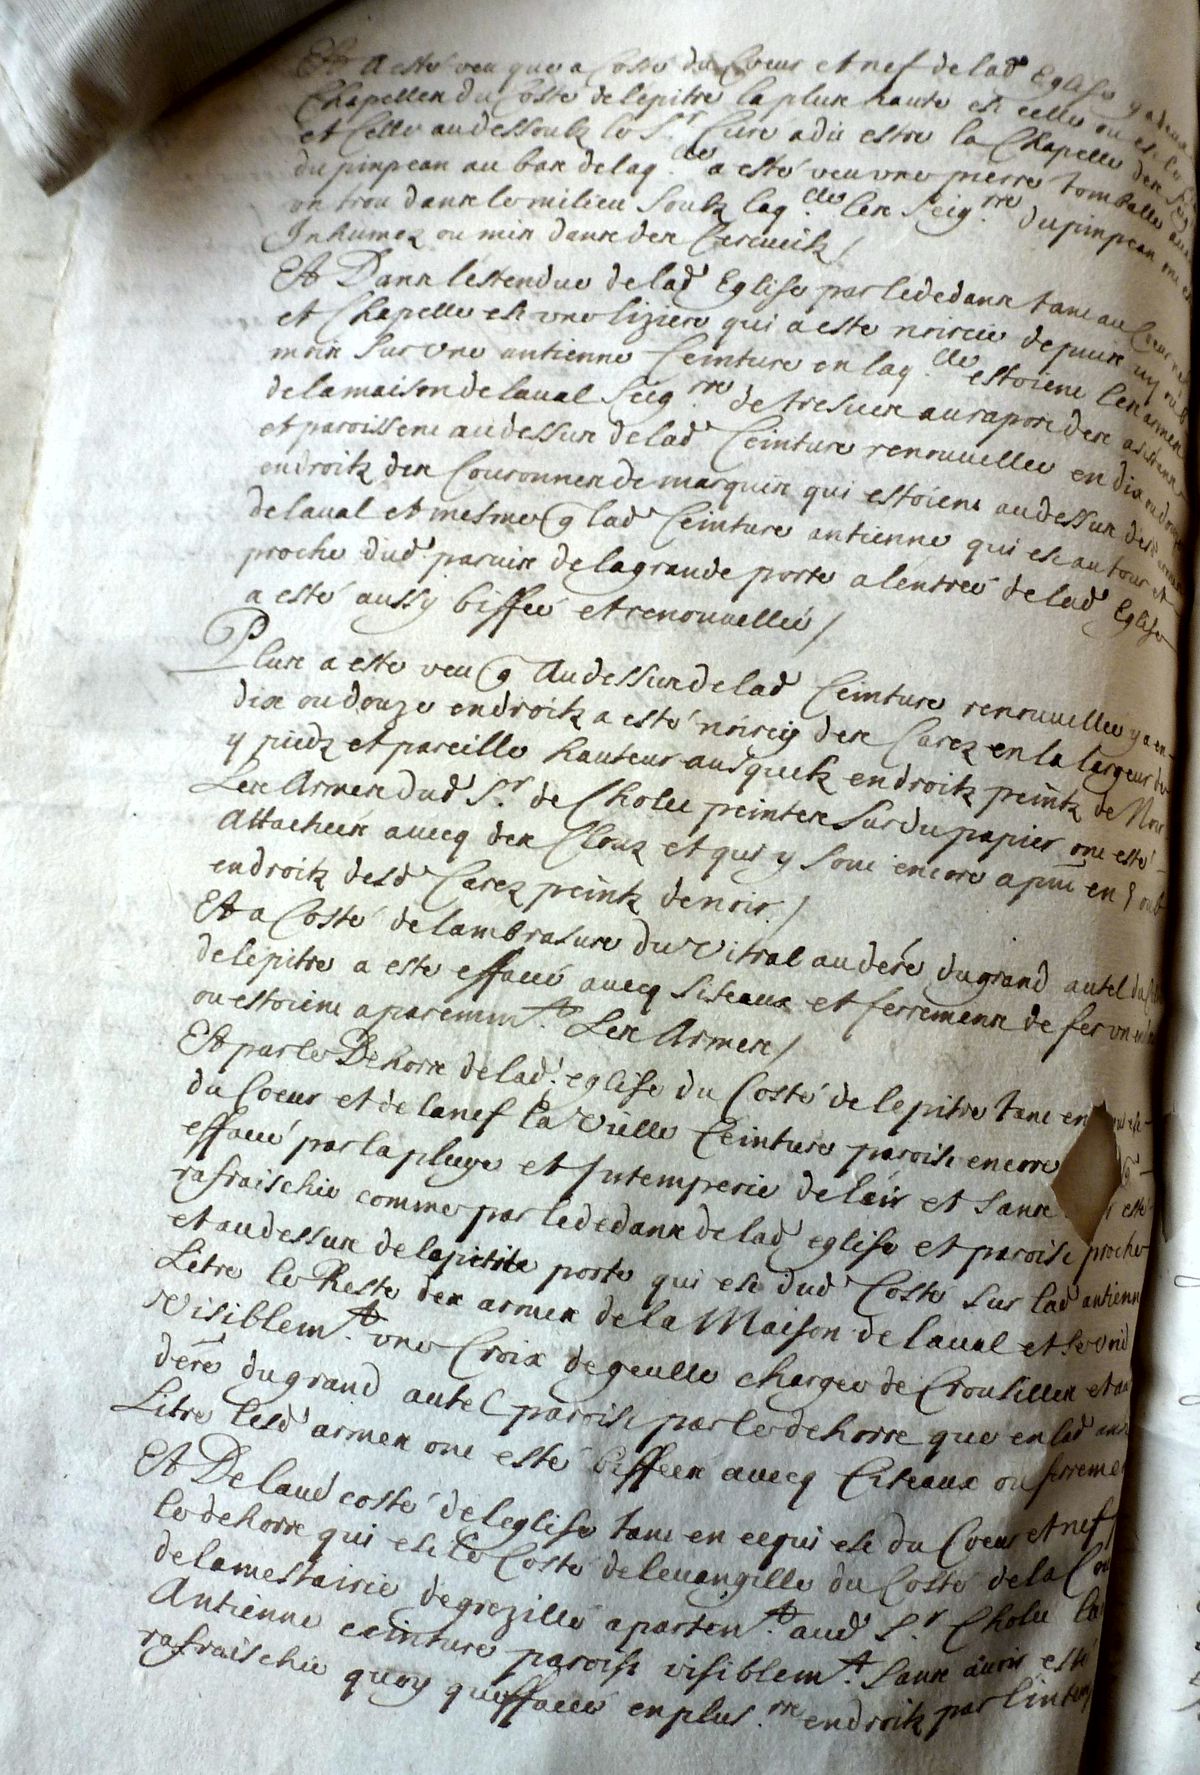 Et a esté veu que a Costé du Coeur et nef de lad Eglise y a deux
Chapelles du Costé de lepitre la plus haute est celle ou est le
et Celle audessoubz le Sr Curé a dit estre la Chapelle des Seig
du pinpean au bas de laqlle a esté veu une pierre tomballe avec
un trou dans le milieu soubz laqlle les Seigrs du pinpean ont
Inhumez ou mis dans des Cercueilz /
Et Dans lestendue de lad Eglise par lededans tant au Coeur nef
et Chapelle est une liziere qui a esté noircie depuis un ou
mois sur une antienne Ceinture en laqlle estoient les armes
de la maison de laual Seigrs de tresues au raport des assistans
et paroissent audessus de lad Ceinture renouuellee en dix ou douze
endroitz des Couronnes de marquis qui estoient audessus des armes
de laual et mesme q lad Ceinture antienne qui est autour et
proche dud paruis de la grande porte a lentreé de lad Eglise
a esté aussy biffeé et renouuelleé /
Plus a esté veu q Audessus de lad Ceinture renouuellee y a en
dix ou douze endroitz a esté noircy des Carez en la largeur de
y piedz et pareille hauteur ausquelz endroitz peintz de Noir
Les Armes dud Sr de Cholu peintes sur du papier ont esté
Attacheés auecq des Clouz et qui y sont encore apnt en
endroitz desd Carez peintz de noir /
Et a Costé de lambrasure du Vitral au déré du grand autel du
de lepitre a esté effacé auecq siseaux et ferremens de fer un
ou estoient aparemmt Les Armes /
Et par le Dehors de lad eglise du Costé de lepitre tant en
du Coeur et de la nef la Vielle Ceinture parois encore
effacé par la pluye et Intemperie de lair et sans esté
rafraischie comme par lededans de lad eglise et parois proche
et audessus de la petite porte qui est dud Costé sur lad antienne
Litre le Reste des armes de la Maison de laual et se void
Visiblemt une Croix de geulle chargeé de Crousilles et au
déré du grand autel parois par le dehors que en lad
Litre lesd armes ont esté biffeés auecq Citeaux ou ferremt
Et De laud costé de leglise tant en ce qui est du Coeur et nef
le dehors qui est le Costé de leuangille du Costé de la
de la mestairie de grezille apartent aud Sr Cholu la
Antienne ceinture parois visiblemt sans auoir esté
rafraischie quoy queffaceé en plusrs endroitz par lintem